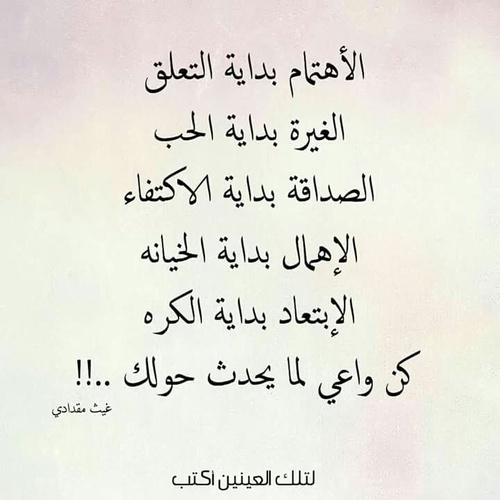 الأهتمام بداية التعلق
الغيرة بداية الحب
الصداقة بداية الاكتفاء
الإهمال بداية الخيانه
الإبتعاد بداية الكره
كن واعي لما يحدث حولك ..!!
غيث مقدادي
لتلك العينين أكتب